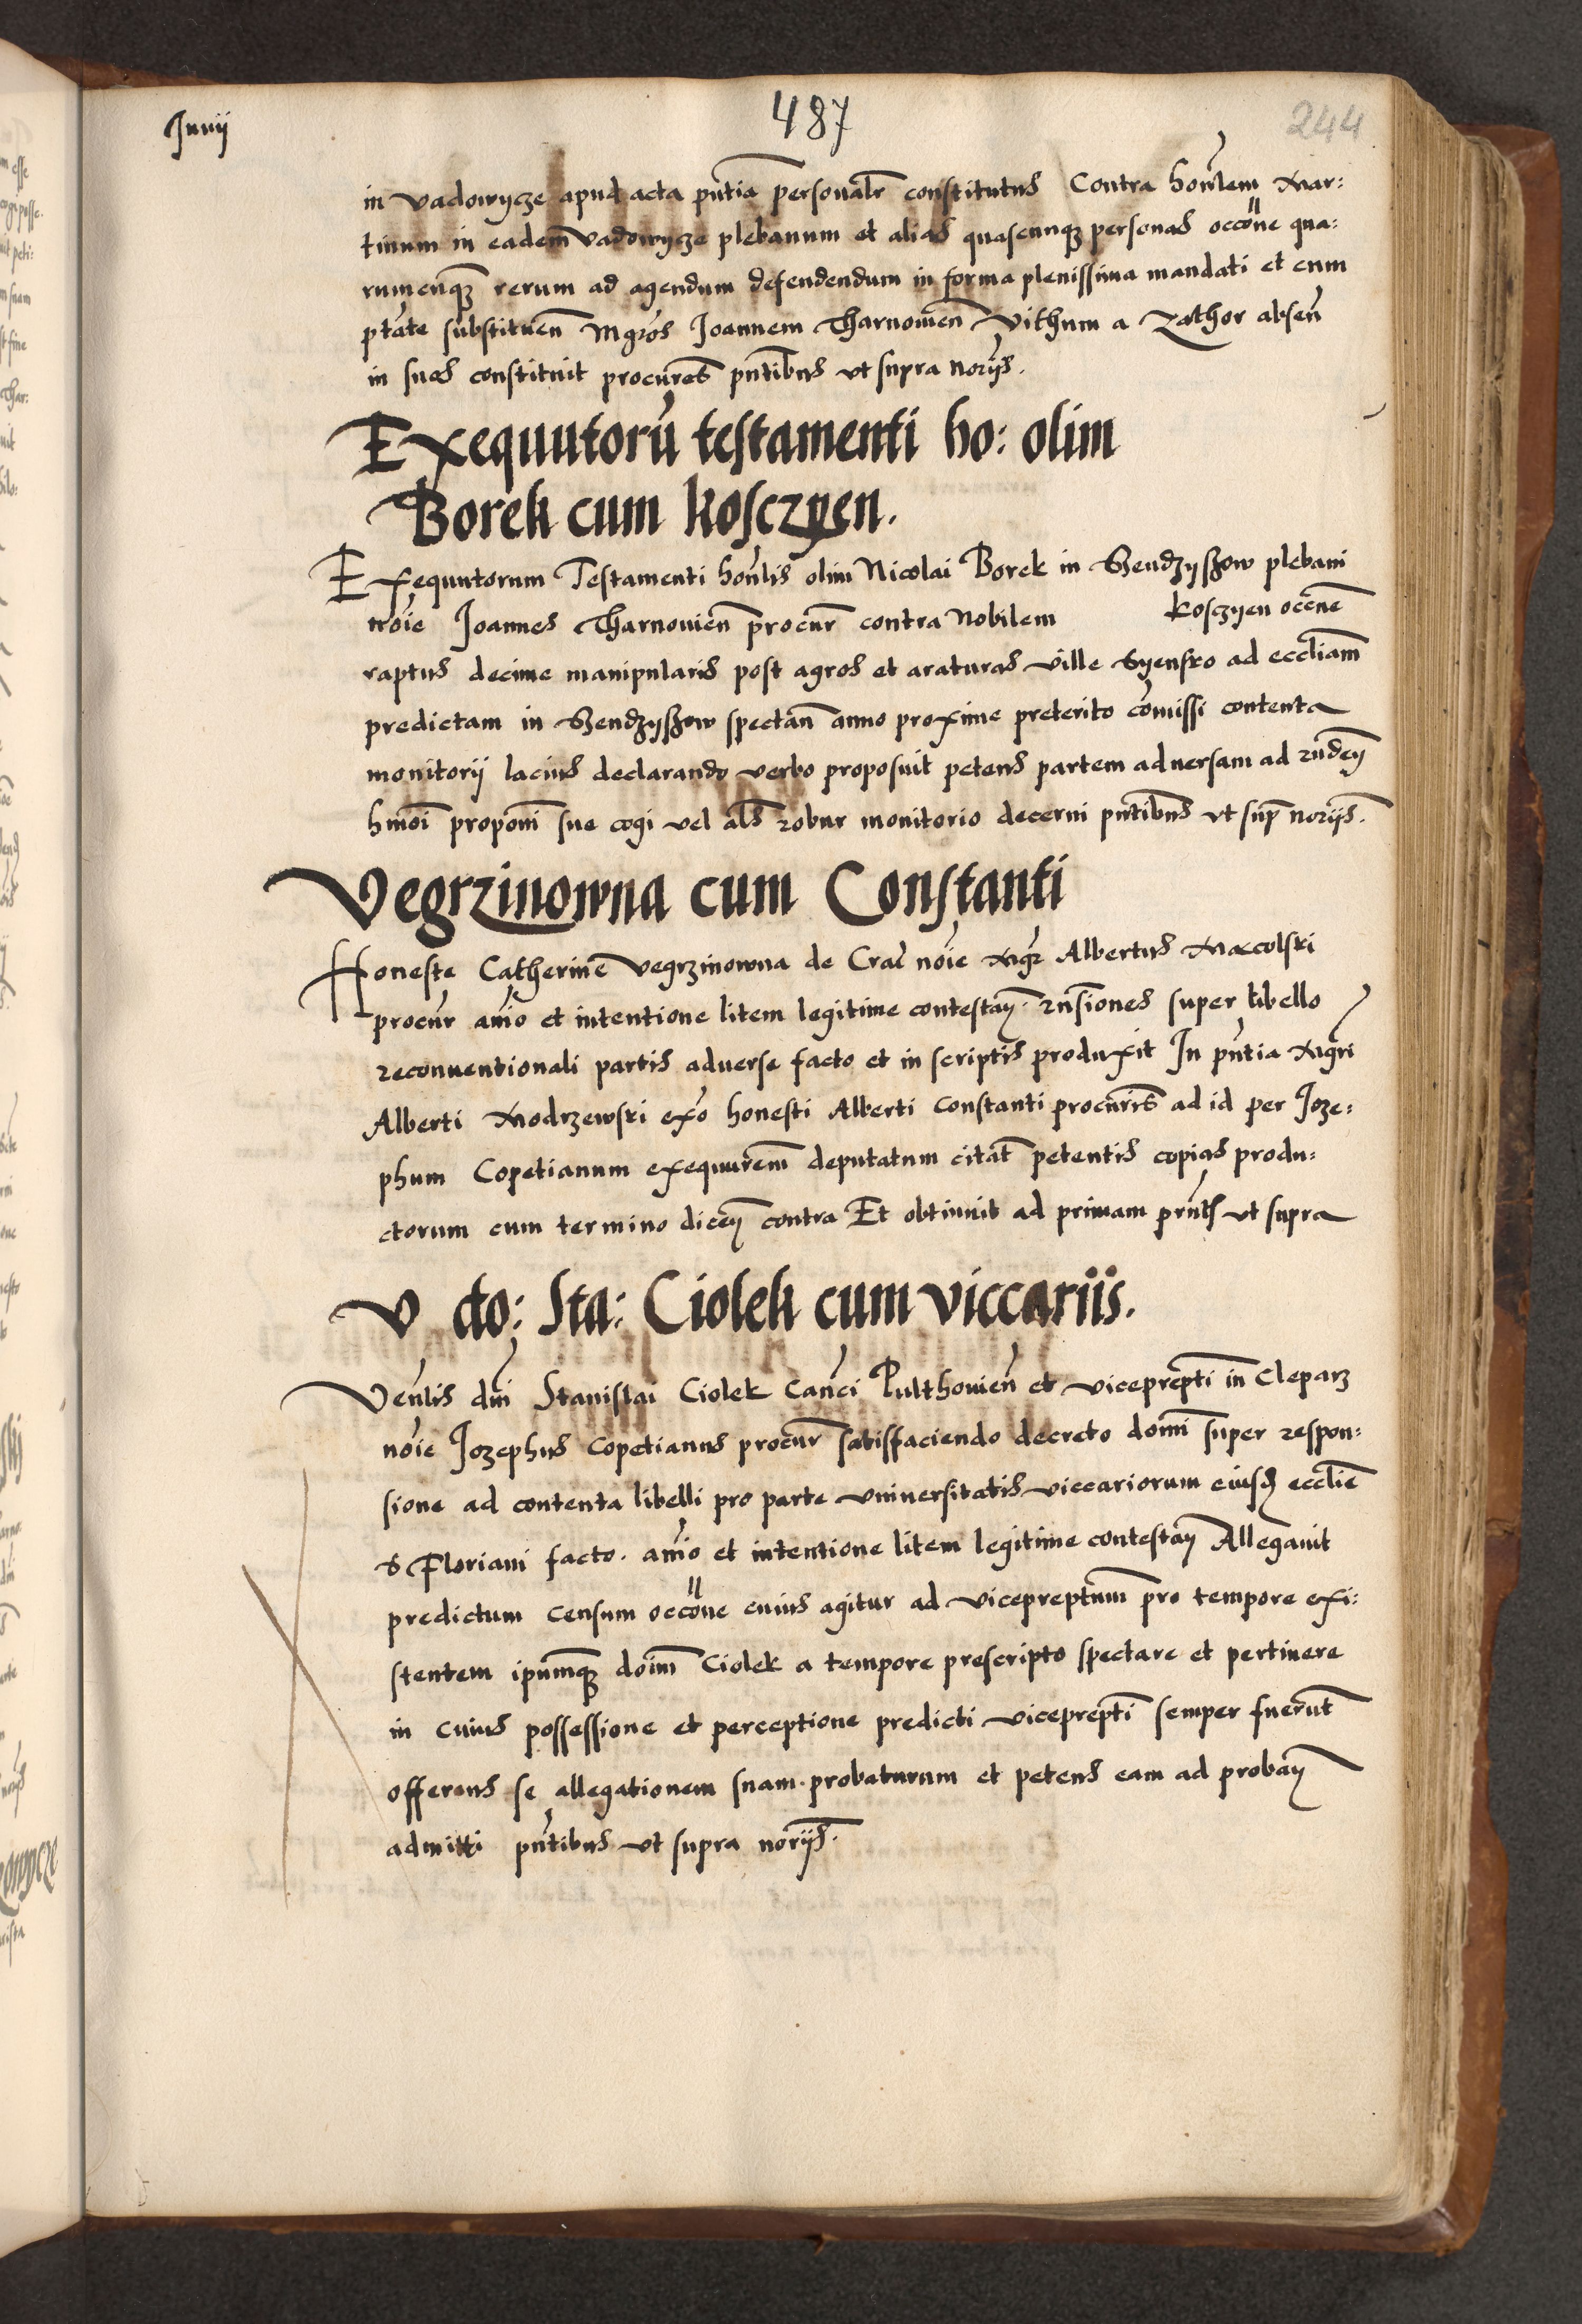 Junij
487
244
in Vadowycze apud acta pñtia personalr̃ constitutus Contra hon̉lem Mar:
tinum in eadem̃ Vadowycze plebanum et alias quascunqꝫ personas occõne qua:
rumcũqꝫ rerum ad agendum defendendum in forma plenissima mandati et cum
ptãte substituen̄ Mgr̃os Joannem Tharnovien̄ Vithum a Zathor absen̄
in suos constituit procur̃es pñtibus vt supra nõrijs.
Exequutorũ testamenti ho: olim
Borek cum Kosczyen.
Exequutorum Testamenti hon̉lis olim Nicolai Borek in Sendzyschow plebani
nõie Joannes Tharnovien̄ procur̃ contra Nobilem Kosczyen occẽne
raptus decime manipularis post agros et araturas ville Syensko ad eccliam̄
predictam in Sendzyschow spectan̄ anno proxime preterito cõmissi contenta
monitorij lacius declarando verbo proposuit petens partem adversam ad rñdeꝝ
hmõi propõni sue cogi vel als̃ robur monitorio decerni pñtibus vt sup̃ nõrijs.
Vegrzinowna cum Constanti
Honeste Catherine Vegrzinowna de Crac̃ nõie Mgr̃ Albertus Maccolski
procur̃ anĩo et intentione litem legitime contestaꝝ. rñsiones super libello
reconventionali partis adverse facto et in scriptis produxit In pñtia Mgr̃i
Alberti Modrzewski exõ honesti Alberti Constanti procur̃is ad id per Joze:
phum Copetianum exequũrem deputatum citat̃ petentis copias produ:
ctorum cum termino diceꝝ contra Et obtinuit ad primam pñtibꝰ vt supra
V do: Sta: Ciolek cum viccariis.
Ven̉lis dñi Stanislai Ciolek Canc̃i Pulthovien̄ et vicepreptĩ in Cleparz
nõie Jozephus Copetianus procur̃ satisfaciendo decreto domĩ super respon:
sione ad contenta libelli pro parte vniversitatis viccariorum eiusđ ecclie̅
S Floriani facto. anĩo et intentione litem legitime contestaꝝ Allegavit
predictum censum occõne cuius agitur ad vicepreptum̄ pro tempore exi:
stentem ipumq̃ꝫ doim̄ Ciolek a tempore prescripto spectare et pertinere
in cuius possessione et perceptione predicti vicepreptĩ semper fuerũt
offerens se allegationem suam. probaturum et petens eam ad probaꝝ
admitti pñtibus vt supra nõrijs.